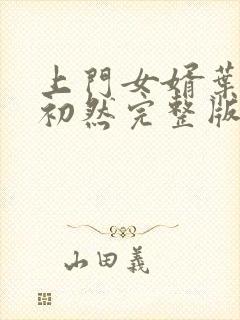 上門女婿葉
初然完整版
山田義